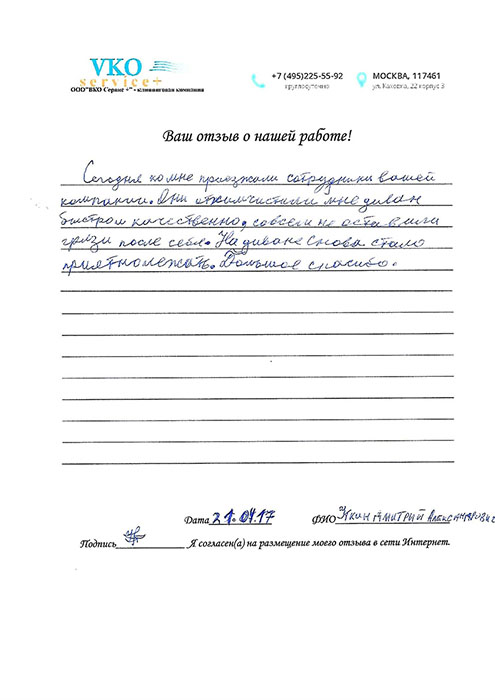 VKO
service+
ООО"ВКО Сервис +" - клининговая компания
+7 (495)225-55-92
круглосуточно
МОСКВА, 117461
ул. Каховка, 22 корпус 3
Ваш отзыв о нашей работе!
Сегодня ко мне приезжали сотрудники вашей
компании. Они отхимчистили мне диван
быстро и качественно, совсем не оставили
грязи после себя. На диване снова стало
приятно лежать. Большое спасибо.
Дата 21.04.17 ФИО Укин Дмитрий Александрович
Подпись Я согласен(а) на размещение моего отзыва в сети Интернет.